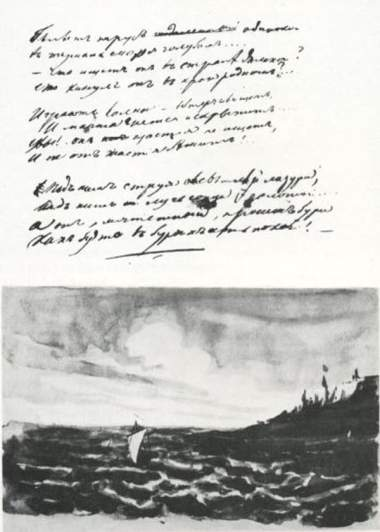 Бѣлѣетъ парусъ одинокой
Въ туманѣ моря голубомъ....
– Что ищетъ онъ въ странѣ далекой?
Что кинулъ онъ въ краю родномъ?...
Играютъ волны – вѣтеръ свищетъ,
И мачта гнется и скрыпитъ...
Увы! онъ счастія не ищетъ,
И не отъ счастія бѣжитъ!
Подъ нимъ струя свѣтлѣй лазури,
Надъ нимъ лучъ солнца золотой...
А онъ, мятежный, проситъ бури,
Какъ будто въ буряхъ есть покой! –